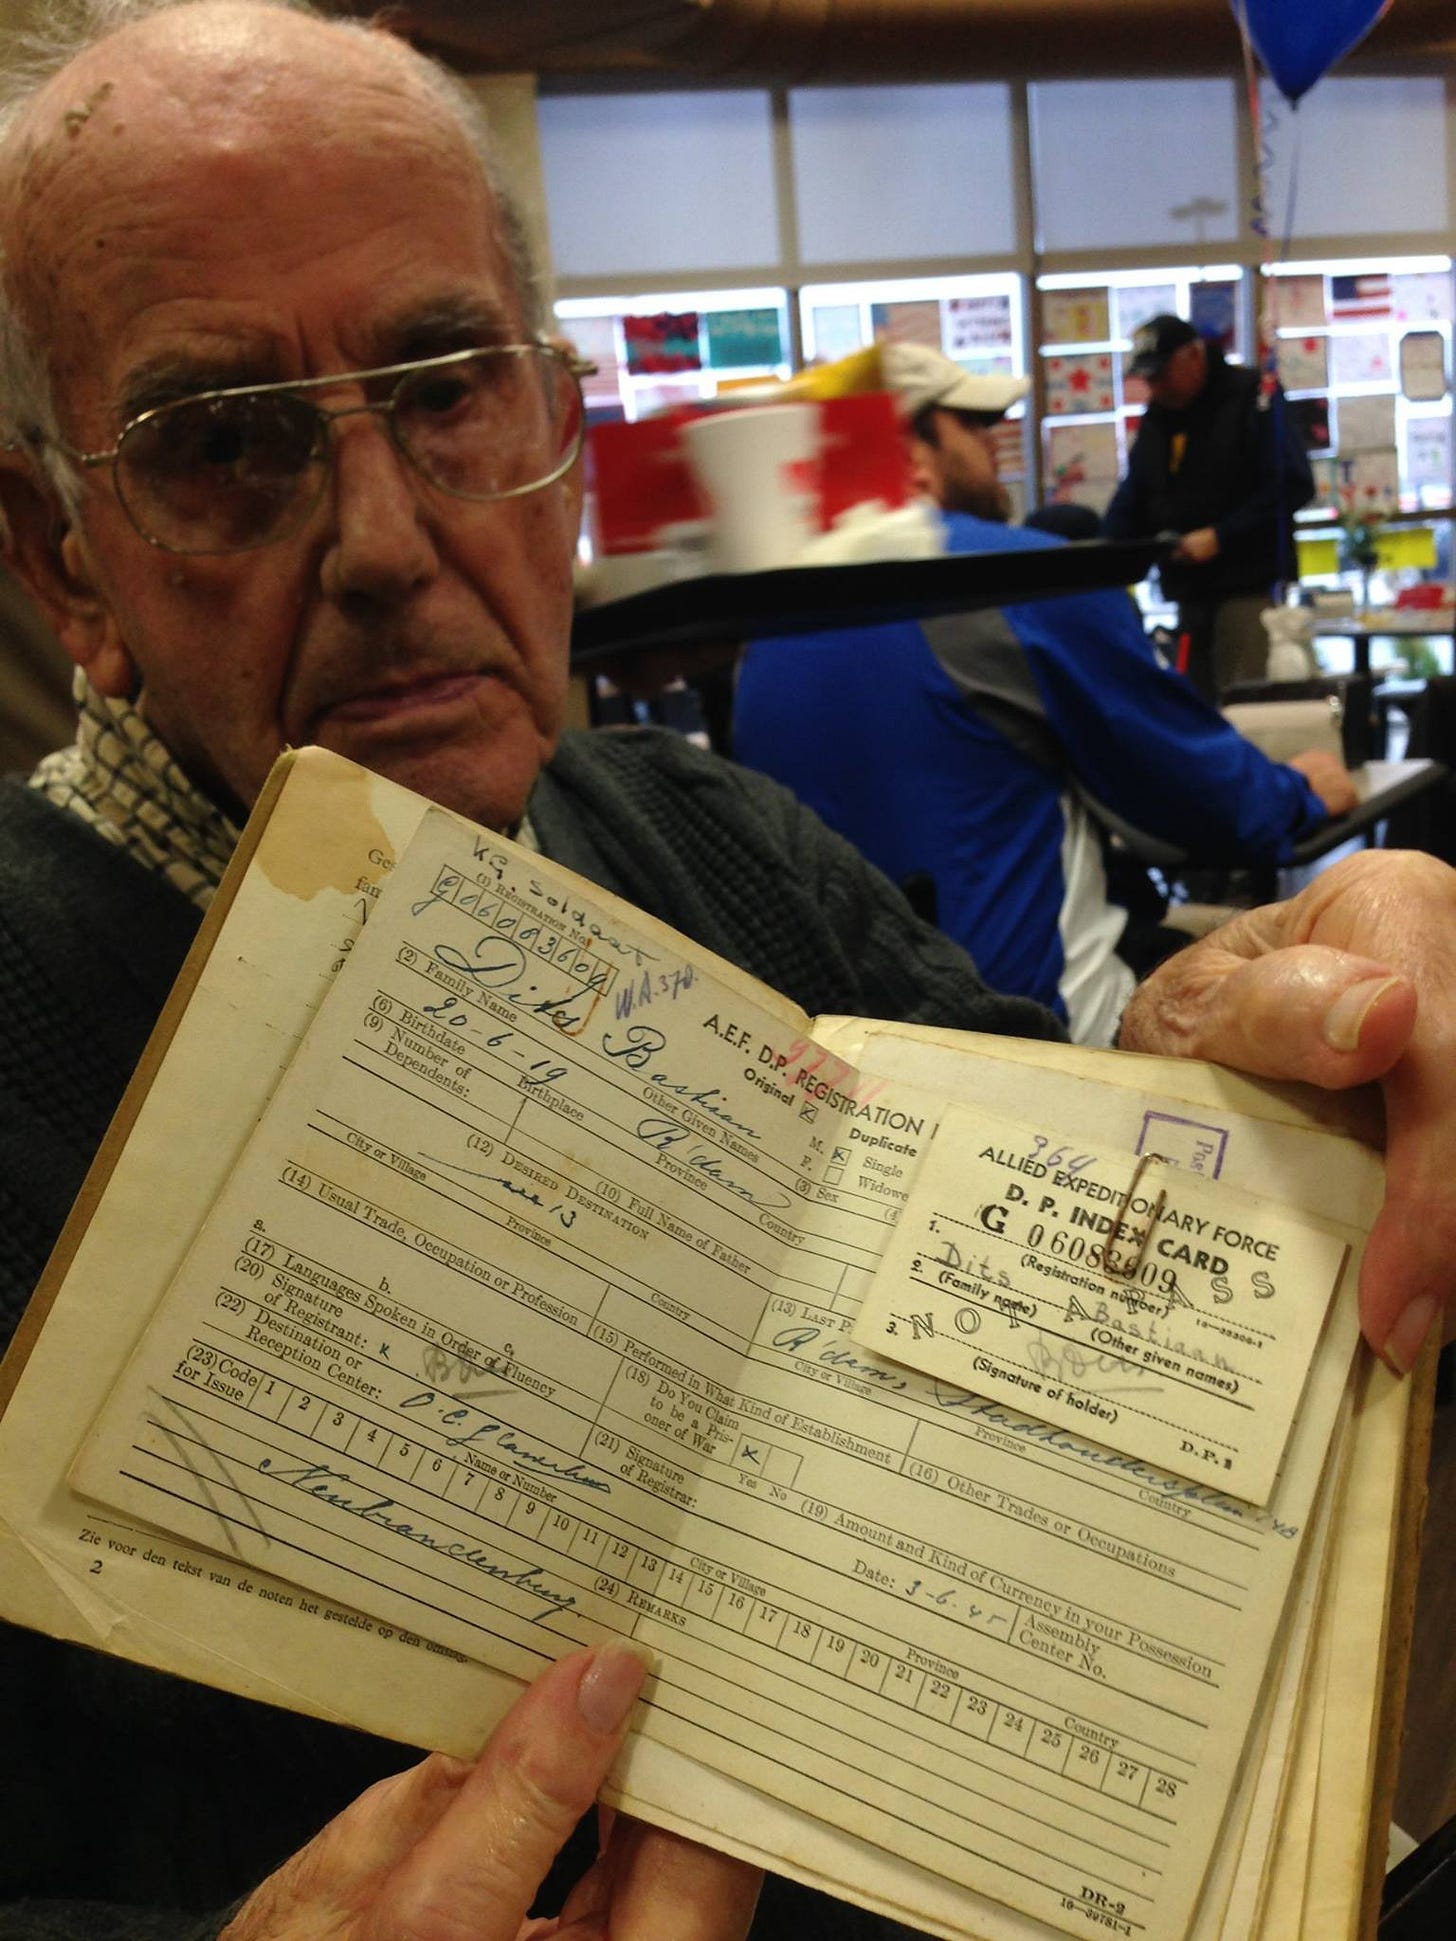 KG. Soldaat
(1) REGISTRATION NO.
W.A. 370.
A.E.F. D.P. REGISTRATION
Original Duplicate
Dits Bastiaan
(2) Family Name Other Given Names (3) Sex
M. Single
F. Widowe
20-6-19 R'dam
(6) Birthdate Birthplace Province Country
(9) Number of
Dependents:
(10) Full Name of Father
(12) DESIRED DESTINATION
City or Village Province Country
(13) LAST P
R'dam,
City or Village Province Country
(14) Usual Trade, Occupation or Profession
(15) Performed in What Kind of Establishment
(16) Other Trades or Occupations
a. b. c.
(17) Languages Spoken in Order of Fluency
(18) Do You Claim
to be a Pris-
oner of War
x
Yes No
(19) Amount and Kind of Currency in your Possession
(20) Signature
of Registrant: x
(21) Signature
of Registrar:
Date: 3-6-45
Assembly
Center No.
(22) Destination or
Reception Center:
Name or Number City or Village Province Country
(23) Code
for Issue
1 2 3 4 5 6 7 8 9 10 11 12 13 14 15 16 17 18 19 20 21 22 23 24 25 26 27 28
(24) REMARKS
Neubrandenburg.
DR-2
16—39781-1
Zie voor den tekst van de noten het gestelde op den omslag.
2
364
ALLIED EXPEDITIONARY FORCE
D. P. INDEX CARD
1. G
(Registration number)
2. Dits Bastiaan
(Family name) (Other given names)
NOT A PASS
3.
(Signature of holder)
D.P. 1